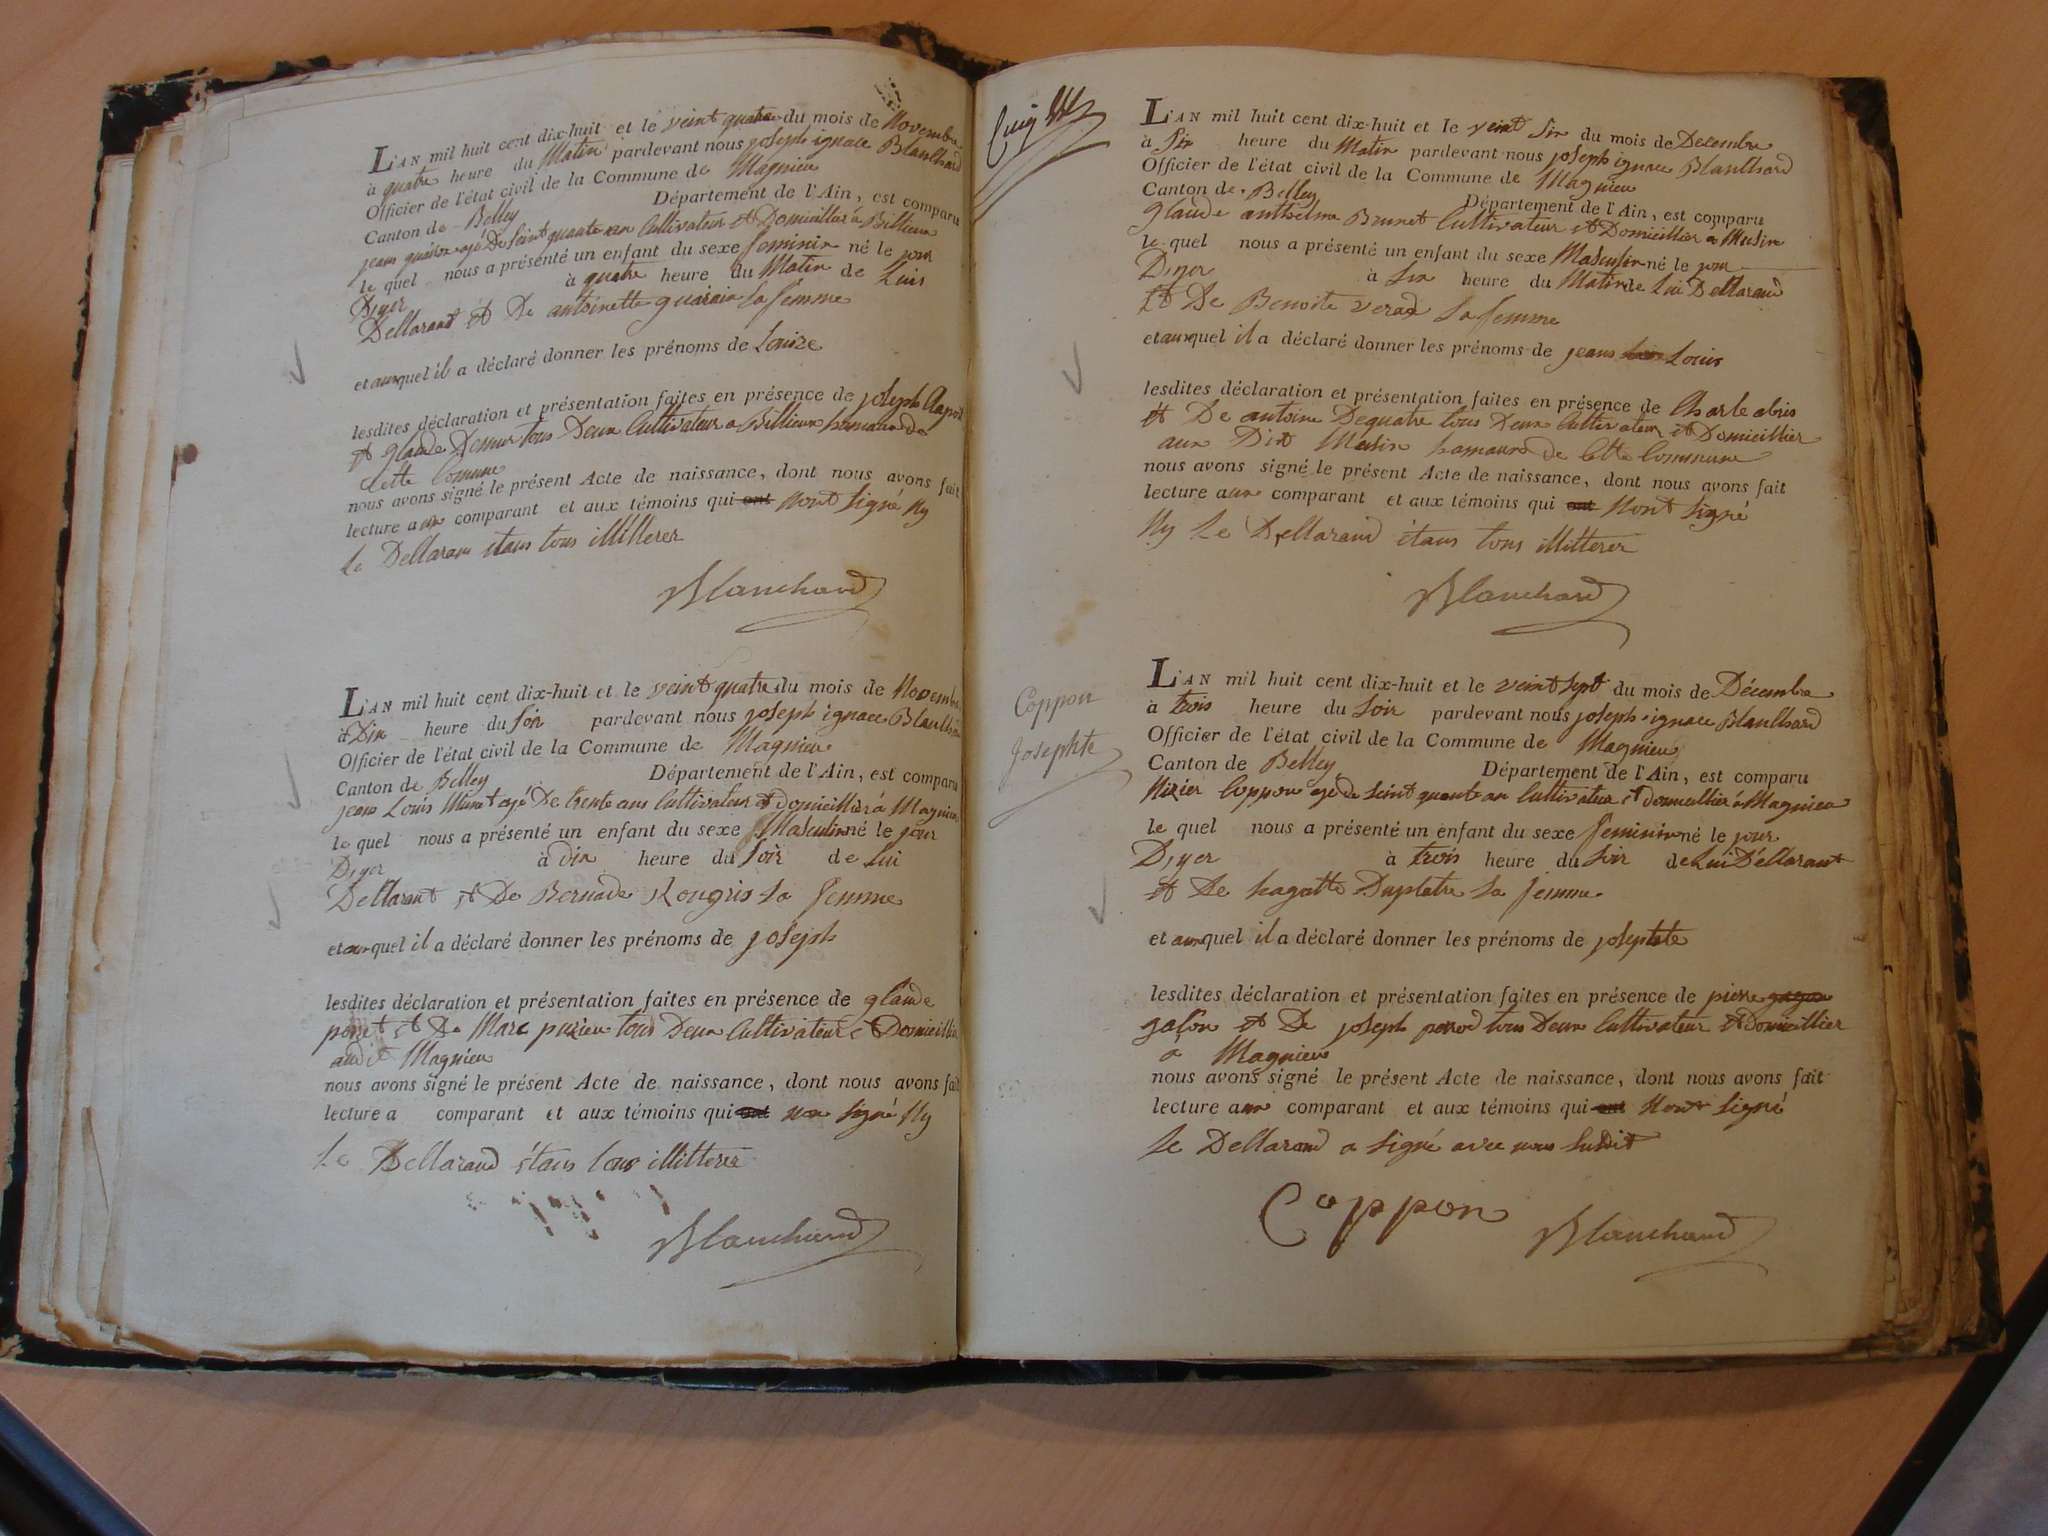 L'AN mil huit cent dix-huit et le veint quatre du mois de Novembre
à quatre heure du Matin pardevant nous joseph ignace Blanchard
Officier de l'état civil de la Commune de Magnieu
Canton de Belley Département de l'Ain, est comparu
jean guérin agé De Seint quante un Cultivateur et Domicillier a Billieux
le quel nous a présenté un enfant du sexe feminin né le jour
Dyer à quatre heure du Matin de Luis
Dellarant et De antoinette guérin Sa femme
et auquel il a déclaré donner les prénoms de Louize
lesdites déclaration et présentation faites en présence de joseph
et glaude Demur tous Deux Cultivateur a Billieux hamaux de
Cette Comune
nous avons signé le présent Acte de naissance, dont nous avons fait
lecture aux comparant et aux témoins qui ont Nont Signé Ny
Le Dellaran étans tous illitterer
Blanchard
L'AN mil huit cent dix-huit et le veint quatre du mois de Novembre
à Dix heure du Soir pardevant nous joseph ignace Blanchard
Officier de l'état civil de la Commune de Magnieu
Canton de Belley Département de l'Ain, est comparu
jean Louis Munet agé De trente ans Cultivateur et domicillier à Magnieu
le quel nous a présenté un enfant du sexe Masculin né le jour
Dyer à dix heure du Soir de Lui
Dellarant et De Bernade Rongris Sa femme
et auquel il a déclaré donner les prénoms de joseph
lesdites déclaration et présentation faites en présence de glaude
peret et De Marc puzieu tous Deux Cultivateur et Domicillier
audit Magnieu
nous avons signé le présent Acte de naissance, dont nous avons fait
lecture a comparant et aux témoins qui ont non Signé Ny
Le Dellarand étans tous illitterer
Blanchard
L'AN mil huit cent dix-huit et le veint Six du mois de Decembre
à Six heure du Matin pardevant nous joseph ignace Blanchard
Officier de l'état civil de la Commune de Magnieu
Canton de Belley Département de l'Ain, est comparu
glaude anthelme Brunet Cultivateur et Domicillier a Musin
le quel nous a présenté un enfant du sexe Masculin né le jour
Dyer à Six heure du Matin de Lui Dellarand
Et De Benoite verad Sa femme
et auxquel il a déclaré donner les prénoms de jeans Louis
lesdites déclaration et présentation faites en présence de Charle abris
et De antoine Dequatre tous Deux Cultivateur et Domicillier
aux Dit Musin hamaux de Cette Commune
nous avons signé le présent Acte de naissance, dont nous avons fait
lecture aux comparant et aux témoins qui ont Nont Signé
Ny Le Dellarand étans tous illitterer
Blanchard
Coppon
Josephte
L'AN mil huit cent dix-huit et le veint Sept du mois de Décembre
à trois heure du Soir pardevant nous joseph ignace Blanchard
Officier de l'état civil de la Commune de Magnieu
Canton de Belley Département de l'Ain, est comparu
Nizier Coppon agé de Seint quante an Cultivateur et domicillier à Magnieu
le quel nous a présenté un enfant du sexe feminin né le jour
Dyer à trois heure du Soir de Lui Déllarant
et De hagatte Duplatre Sa femme
et auxquel il a déclaré donner les prénoms de josephte
lesdites déclaration et présentation faites en présence de pierre
gason et De joseph perrod tous Deux Cultivateur et Domicillier
a Magnieu
nous avons signé le présent Acte de naissance, dont nous avons fait
lecture aux comparant et aux témoins qui ont Nont Signé
Le Dellarand a signé avec nous Susdit
Coppon Blanchard